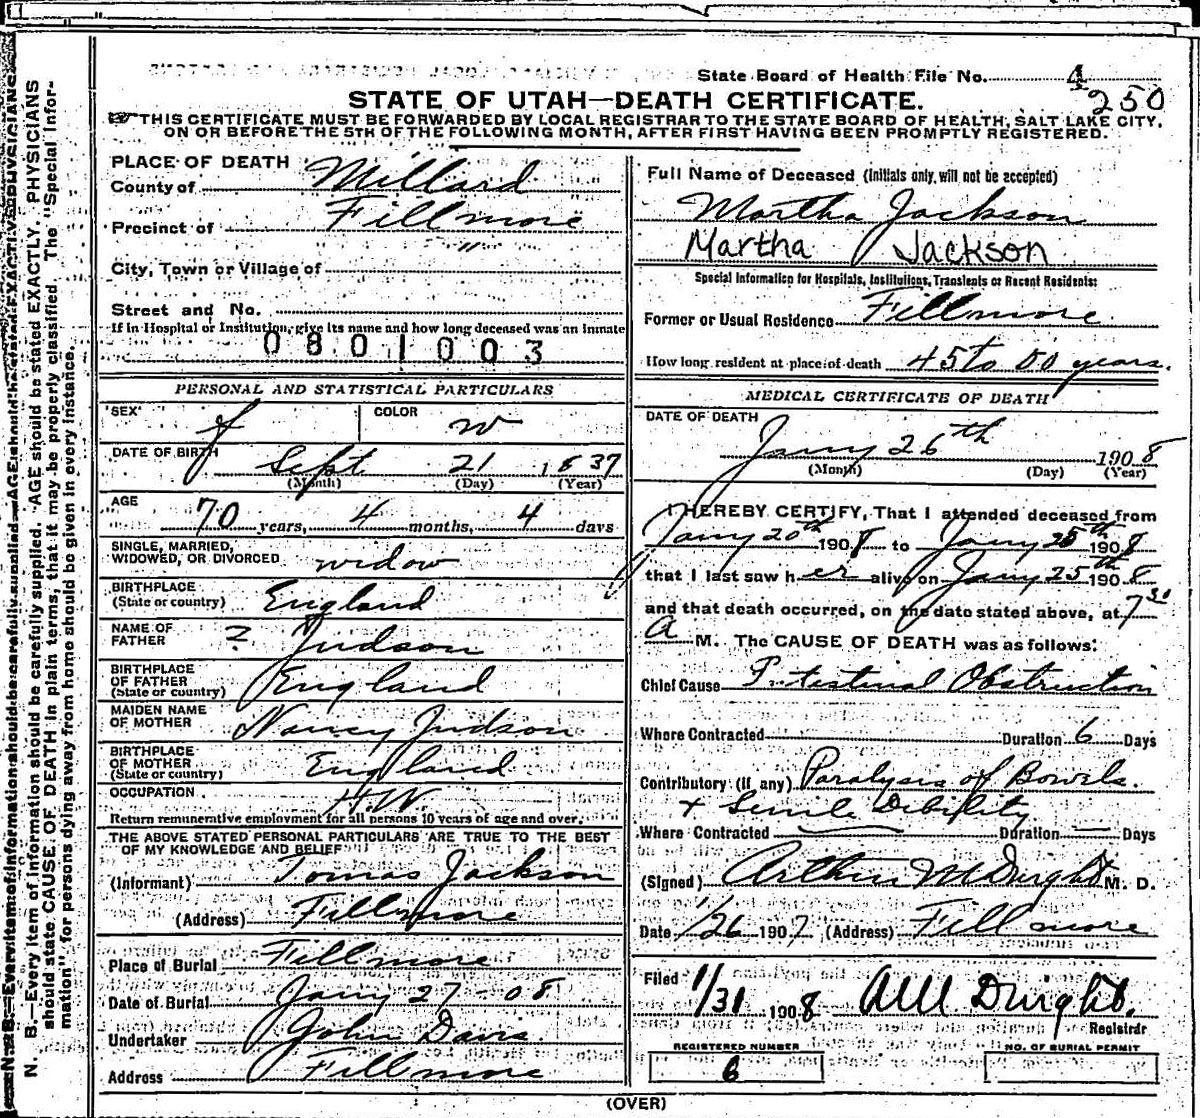 State Board of Health File No. 4
250
STATE OF UTAH—DEATH CERTIFICATE.
THIS CERTIFICATE MUST BE FORWARDED BY LOCAL REGISTRAR TO THE STATE BOARD OF HEALTH, SALT LAKE CITY,
ON OR BEFORE THE 5TH OF THE FOLLOWING MONTH, AFTER FIRST HAVING BEEN PROMPTLY REGISTERED.
N. B.—Every item of information should be carefully supplied. AGE should be stated EXACTLY. PHYSICIANS
should state CAUSE OF DEATH in plain terms, that it may be properly classified. The "Special Infor-
mation" for persons dying away from home should be given in every instance.
PLACE OF DEATH
County of Millard
Precinct of Fillmore
City, Town or Village of "
Street and No.
If in Hospital or Institution, give its name and how long deceased was an inmate
0801003
PERSONAL AND STATISTICAL PARTICULARS
SEX f COLOR w
DATE OF BIRTH Sept 21 1837
(Month) (Day) (Year)
AGE 70 years, 4 months, 4 days
SINGLE, MARRIED,
WIDOWED, OR DIVORCED widow
BIRTHPLACE
(State or country) England
NAME OF
FATHER ? Judson
BIRTHPLACE
OF FATHER
(State or country) England
MAIDEN NAME
OF MOTHER Nancy Judson
BIRTHPLACE
OF MOTHER
(State or country) England
OCCUPATION H.W.
Return remunerative employment for all persons 10 years of age and over.
THE ABOVE STATED PERSONAL PARTICULARS ARE TRUE TO THE BEST
OF MY KNOWLEDGE AND BELIEF
(Informant) Tomas Jackson
(Address) Fillmore
Place of Burial Fillmore
Date of Burial Jany 27-08
Undertaker John Davis
Address Fillmore
Full Name of Deceased (Initials only, will not be accepted)
Martha Jackson
Martha Jackson
Special Information for Hospitals, Institutions, Transients or Recent Residents:
Former or Usual Residence Fillmore
How long resident at place of death 45 to 50 years.
MEDICAL CERTIFICATE OF DEATH
DATE OF DEATH
Jany 26th 1908
(Month) (Day) (Year)
I HEREBY CERTIFY, That I attended deceased from
Jany 20th 1908 to Jany 25th 1908
that I last saw her alive on Jany 25th 1908
and that death occurred, on the date stated above, at 7 30
A M. The CAUSE OF DEATH was as follows:
Chief Cause Intestinal Obstruction
Where Contracted Duration 6 Days
Contributory (if any) Paralysis of Bowels
+ Senile Debility
Where Contracted — Duration — Days
(Signed) Arthur M Dwight M. D.
Date 1/26 1907 (Address) Fillmore
Filed 1/31 1908 AM Dwight.
Registrar
REGISTERED NUMBER NO. OF BURIAL PERMIT
6
(OVER)